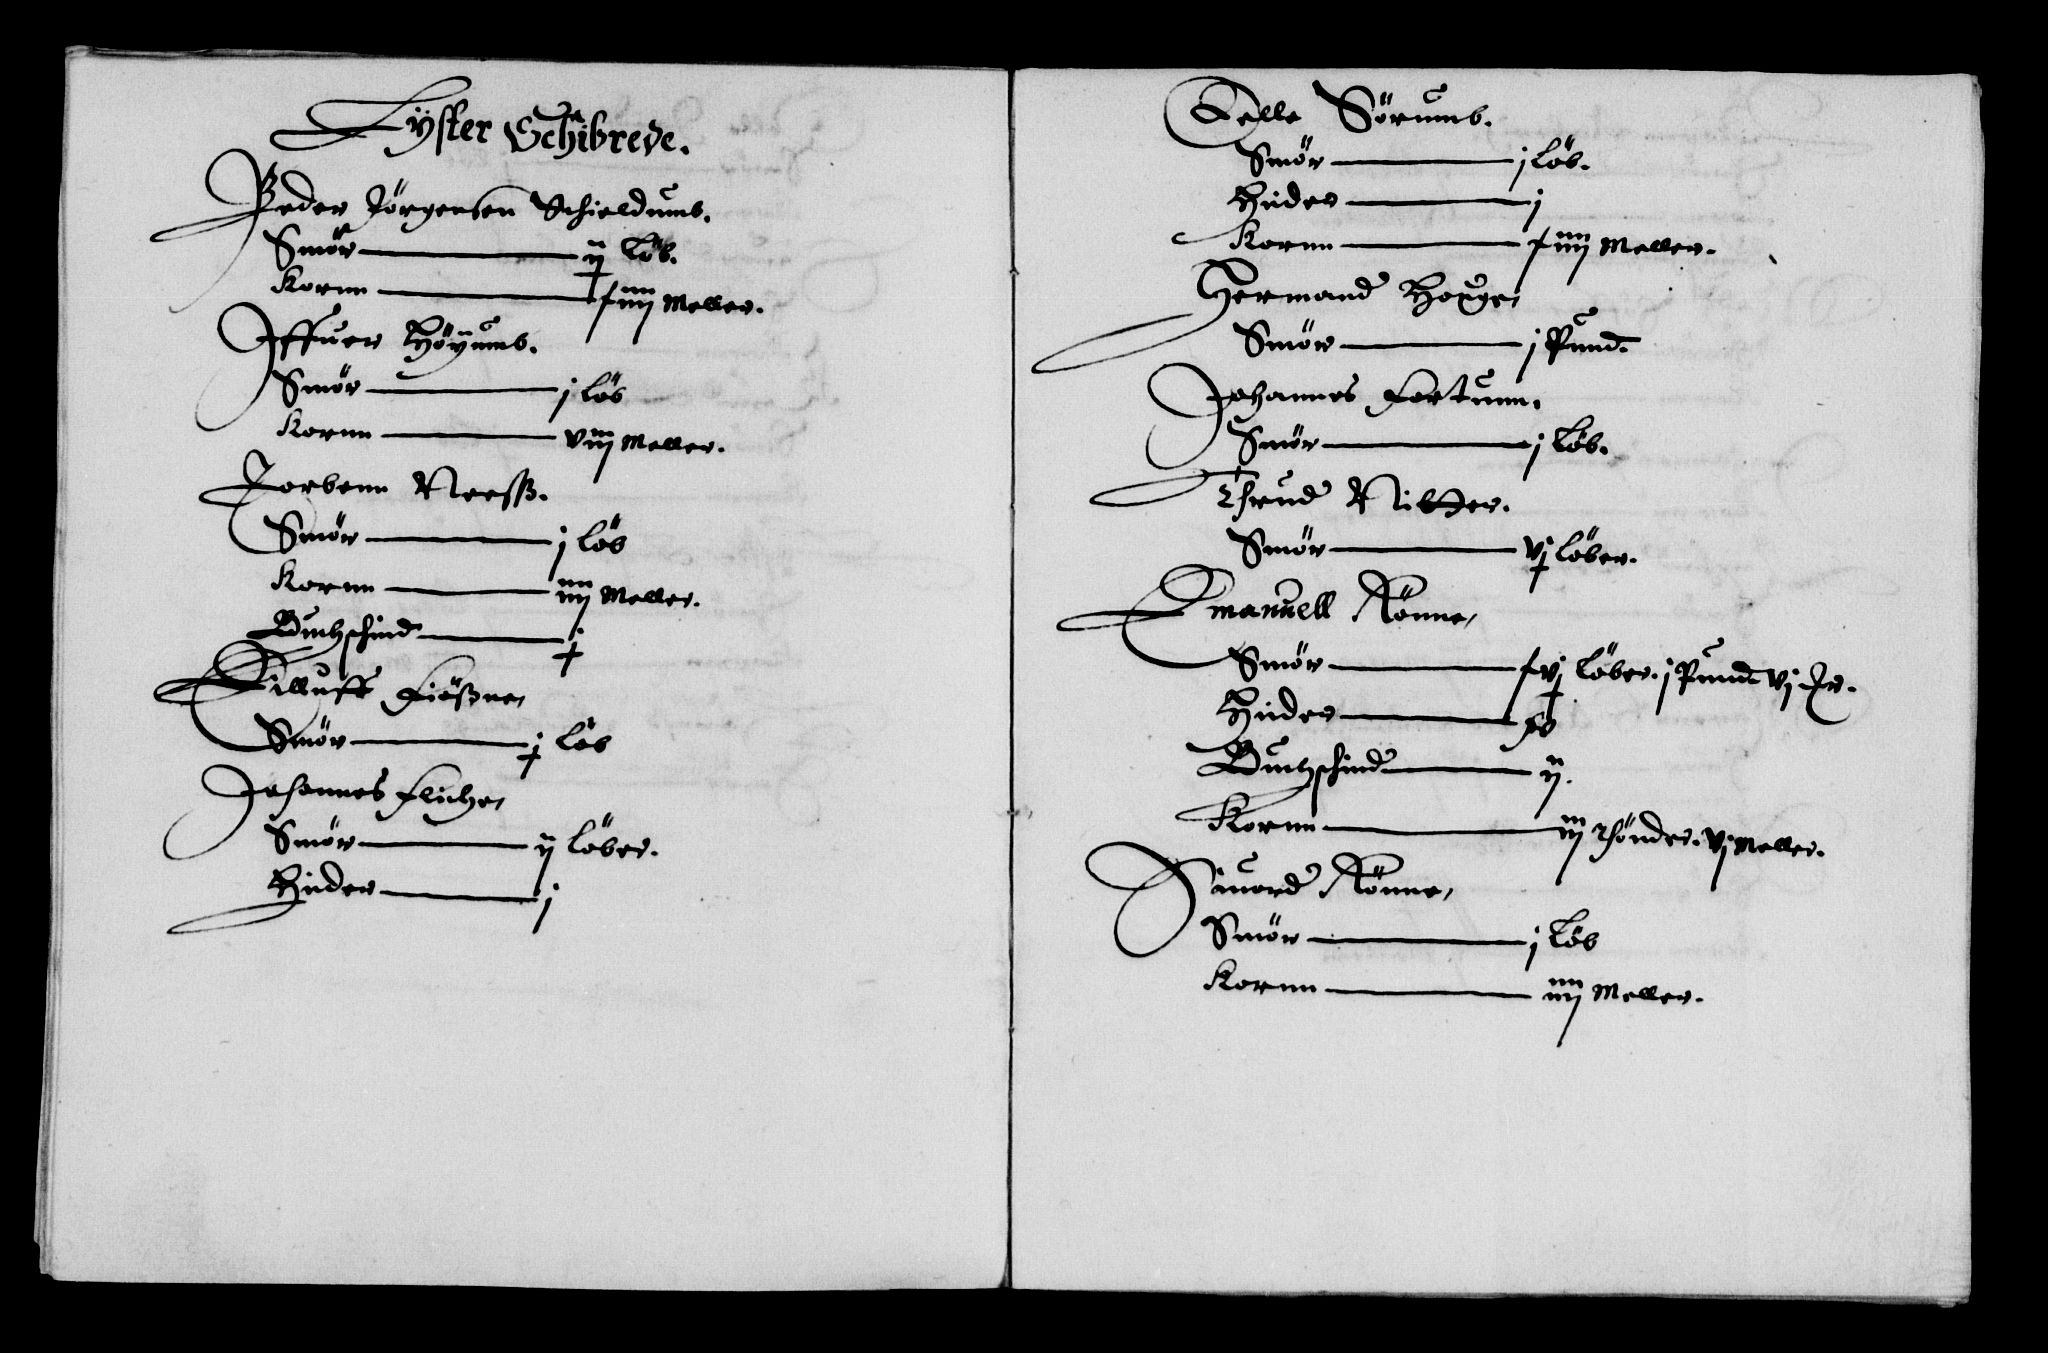 Lÿster Schibrede.
Peder Jörgensen Schieldumb.
Smör — ij löb.
Kornn — Meller.
Iffuer Höÿumb.
Smör — j löb
Kornn — viiij Meller.
Torbenn Neess.
Smör — j löb
Kornn — iiij Meller.
Buchschind — j
Eilluff Fiössne,
Smör — j löb
Johannes Fliche,
Smör — ij löber.
Huder — j
Pelle Sörumb.
Smör — j löb.
Huder — j
Kornn — Meller.
Hermand Houge,
Smör — j Pund
Johannes Fortunn.
Smör — j löb.
Thrud Nitter.
Smör — vj löber.
Emanuell Rönne,
Smör — löber. j Pund vj
Huder —
Buchschind — ij.
Kornn — iij Thönder. vj Meller.
Siuord Rönne,
Smör — j löb
Kornn — iiij Meller.